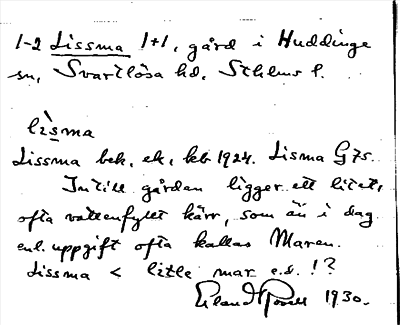 1-2 Lissma 1+1, gård i Huddinge
sn, Svartlösa hd, Sthlms l.
lìsma
Lissma bek, ek, kb 1924. Lisma G75.
Intill gården ligger ett litet,
ofta vattenfyllt kärr, som än i dag
enl. uppgift ofta kallas Maren.
Lissma < litle mar e.d. !?
Erland 1930.